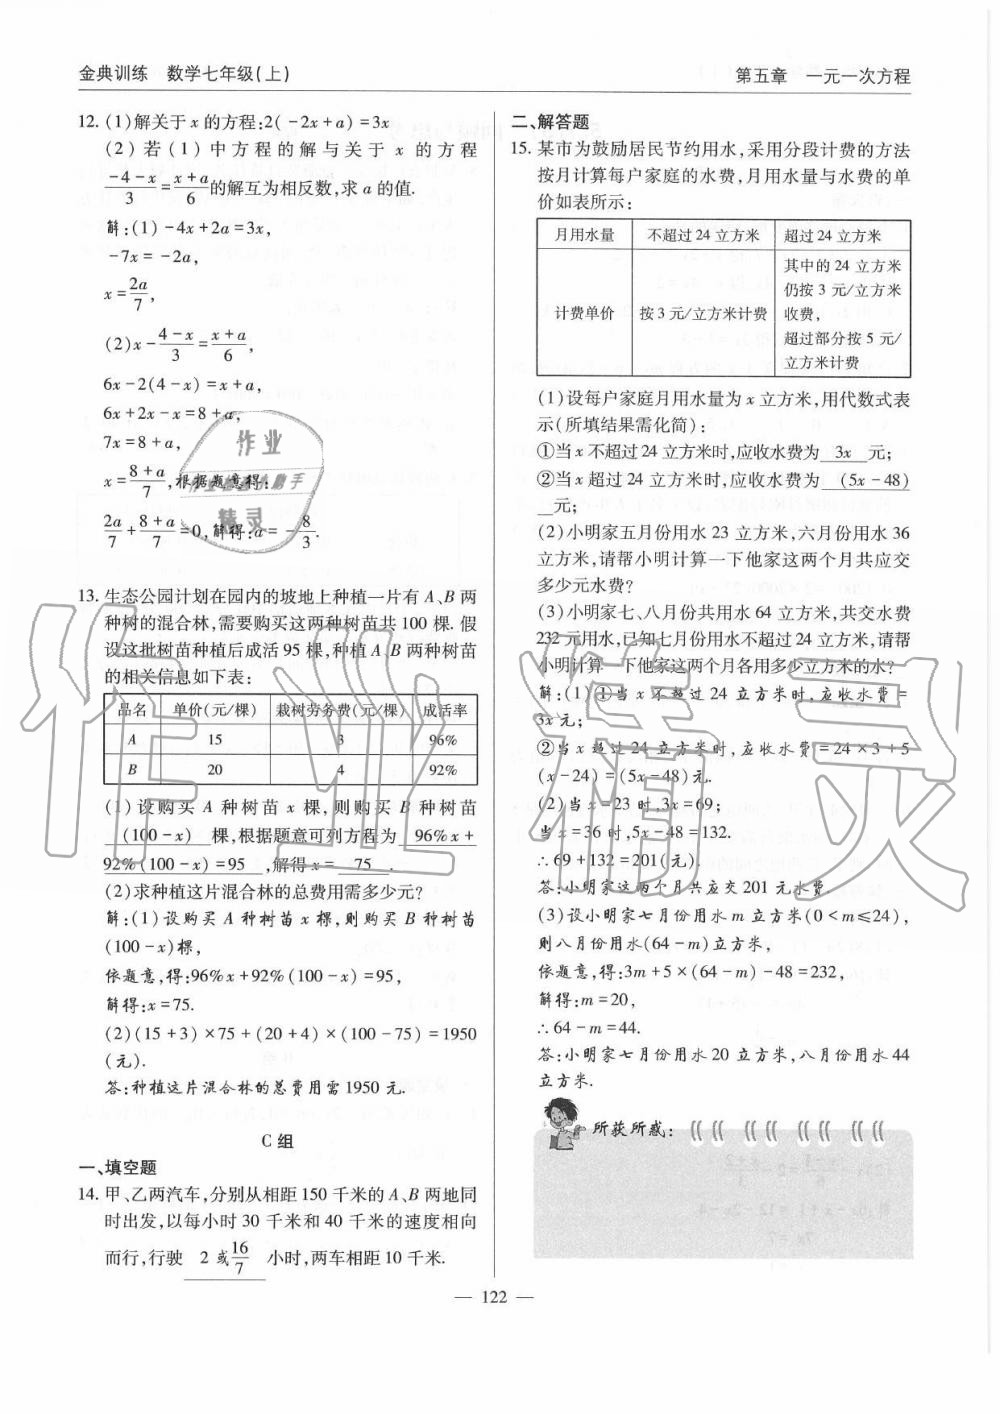 金典训练　数学七年级(上)
第五章　一元一次方程
12. (1)解关于 x 的方程:2(-2x+a)=3x
(2) 若 (1) 中方程的解与关于 x 的方程
(-4-x)/3=(x+a)/6的解互为相反数,求 a 的值.
解:(1)-4x+2a=3x,
-7x=-2a,
x=2a/7,
(2)x-(4-x)/3=(x+a)/6,
6x-2(4-x)=x+a,
6x+2x-x=8+a,
7x=8+a,
x=(8+a)/7,根据题意得:
2a/7+(8+a)/7=0,解得:a=-8/3.
13. 生态公园计划在园内的坡地上种植一片有 A、B 两
种树的混合林,需要购买这两种树苗共 100 棵. 假
设这批树苗种植后成活 95 棵,种植 A、B 两种树苗
的相关信息如下表:
品名　单价(元/棵)　栽树劳务费(元/棵)　成活率
A　15　3　96%
B　20　4　92%
(1) 设购买 A 种树苗 x 棵,则购买 B 种树苗
(100-x) 棵,根据题意可列方程为 96%x+
92%(100-x)=95 ,解得 x= 75 .
(2)求种植这片混合林的总费用需多少元?
解:(1)设购买 A 种树苗 x 棵,则购买 B 种树苗
(100-x)棵,
依题意,得:96%x+92%(100-x)=95,
解得:x=75.
(2)(15+3)×75+(20+4)×(100-75)=1950
(元).
答:种植这片混合林的总费用需 1950 元.
C 组
一、填空题
14. 甲、乙两汽车,分别从相距 150 千米的 A、B 两地同
时出发,以每小时 30 千米和 40 千米的速度相向
而行,行驶 2 或16/7 小时,两车相距 10 千米.
二、解答题
15. 某市为鼓励居民节约用水,采用分段计费的方法
按月计算每户家庭的水费,月用水量与水费的单
价如表所示:
月用水量　不超过 24 立方米　超过 24 立方米
计费单价　按 3 元/立方米计费　其中的 24 立方米
仍按 3 元/立方米
收费,
超过部分按 5 元/
立方米计费
(1)设每户家庭月用水量为 x 立方米,用代数式表
示(所填结果需化简):
①当 x 不超过 24 立方米时,应收水费为 3x 元;
②当 x 超过 24 立方米时,应收水费为 (5x-48)
元;
(2)小明家五月份用水 23 立方米,六月份用水 36
立方米,请帮小明计算一下他家这两个月共应交
多少元水费?
(3)小明家七、八月份共用水 64 立方米,共交水费
232 元用水,已知七月份用水不超过 24 立方米,请帮
小明计算一下他家这两个月各用多少立方米的水?
解:(1)①当 x 不超过 24 立方米时,应收水费=
3x 元;
②当 x 超过 24 立方米时,应收水费=24×3+5
(x-24)=(5x-48)元.
(2)当 x=23 时,3x=69;
当 x=36 时,5x-48=132.
∴69+132=201(元).
答:小明家这两个月共应交 201 元水费.
(3)设小明家七月份用水 m 立方米(0<m≤24),
则八月份用水(64-m)立方米,
依题意,得:3m+5×(64-m)-48=232,
解得:m=20,
∴64-m=44.
答:小明家七月份用水 20 立方米,八月份用水 44
立方米.
所获所惑:
— 122 —
作业
精灵
作业精灵